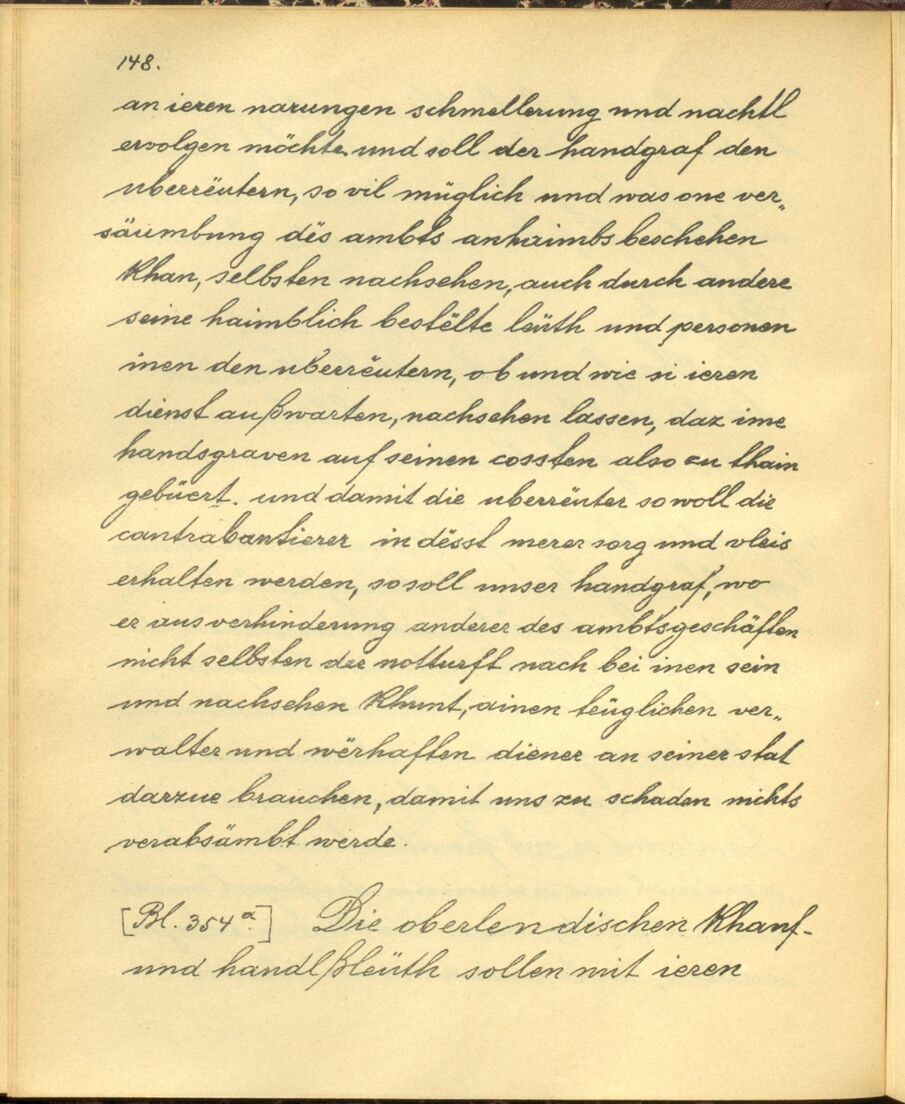 148.
an ieren narungen schmellerung und nachtl
ervolgen möchte, und soll der handgraf den
uberrëutern, so vil müglich und was one ver„
säumbung dës ambts anhaimbs beschehen
khan, selbsten nachsehen, auch durch andere
seine haimblich bestëlte leüth und personen
inen den uberrëutern, ob und wie si ieren
dienst außwarten, nachsehen lassen, daz ime
handsgraven auf seinen cossten also zu thain
gebüert. und damit die uberrëuter sowoll die
cantrabantierer in dësst merer sorg und vleis
erhalten werden, so soll unser handgraf, wo
er aus verhinderung anderer des ambtsgeschäften
nicht selbsten der notturft nach bei inen sein
und nachsehen khunt, ainen teüglichen ver„
walter und wërhaften diener an seiner stat
darzue brauchen, damit uns zu schaden nichts
verabsämbt werde.
[Bl. 354a.] Die oberlendischen khauf-
und handlßleüth sollen mit ieren